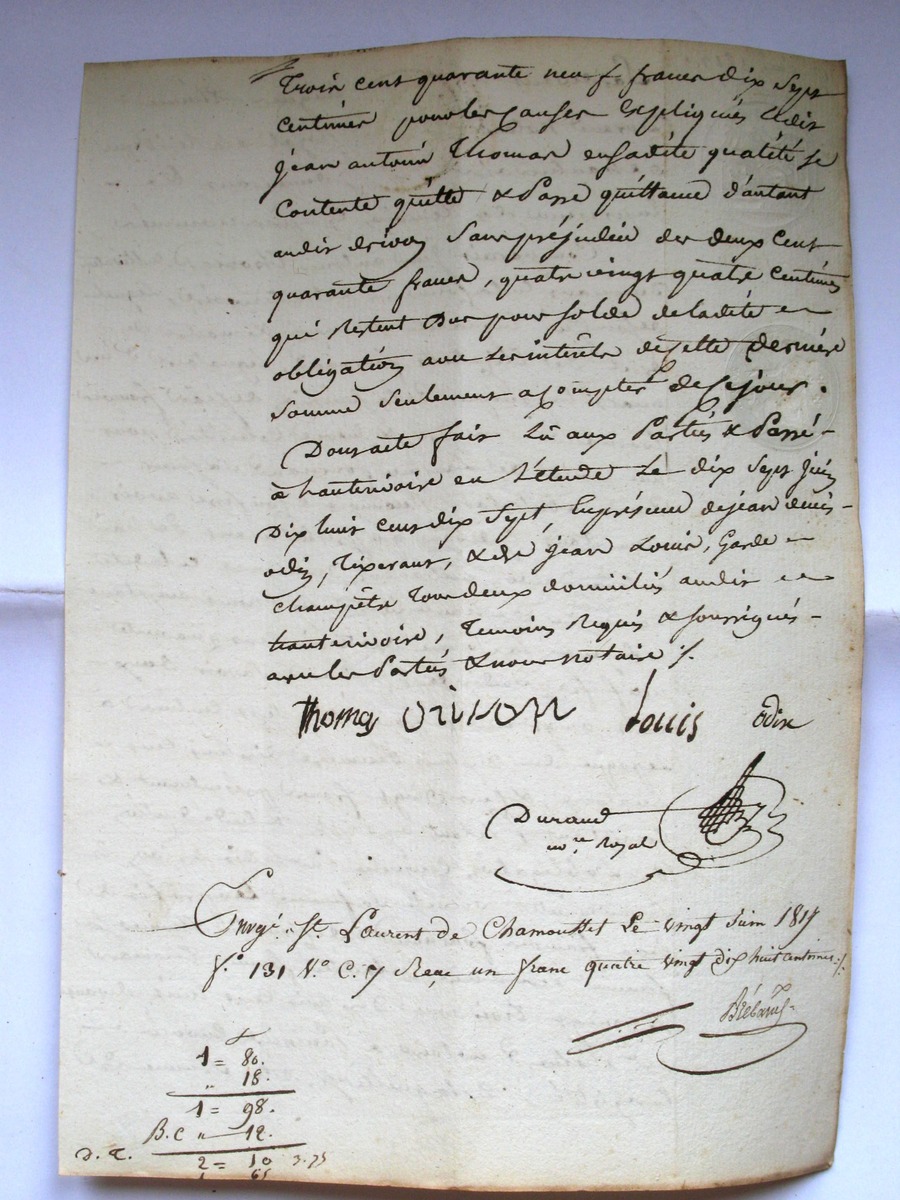 Trois cent quarante neuf francs dix sept
centimes pour les causes Expliqués ledit
jean antoine Thomas ensadite qualité se
Contente quitte & Passe quittance d'autant
audit sans préjudice des deux Cent
quarante francs, quatre vingt quatre Centimes
qui Restent Dus pour solde deladite
obligation avec Les intérêts de cette dernière
somme seulement acompter de Cejour.
Dont acte fait Lû aux Parties & Passé
à hauterivoire en L'étude Le dix Sept juin
Dix huit cent dix Sept, En présence de jean denis
odin, Tixerant, & de jean Louis, Garde
champêtre Tous deux domiciliés audit
hauterivoire, Temoins Requis & soussignés
avec les Parties & nous notaire ./.
Thomas Louis Odin
Durand
nore Royal
Enregé. St. Laurent de Chamousset Le vingt Juin 1817
f.o 131 V.o C. 7 Reçu un franc quatre vingt dix huit centimes ./.
1 = 80.
" 18.
1 = 98.
B.C " 12.
D. C. 2 = 10 3.75